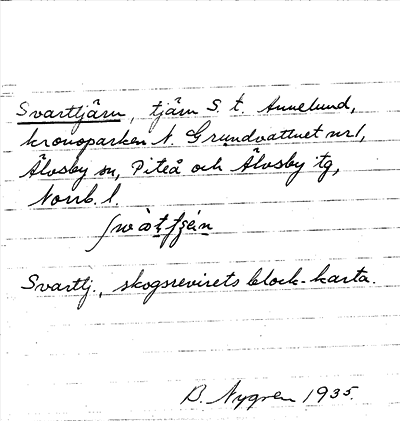 Svarttjärn, tjärn S. t. Annelund,
kronoparken N. Grundvattnet nr 1,
Älvsby sn, Piteå och Älvsby tg,
Norrb. l.
Svarttj., skogsrevirets block-karta.
B. Nygren 1935.